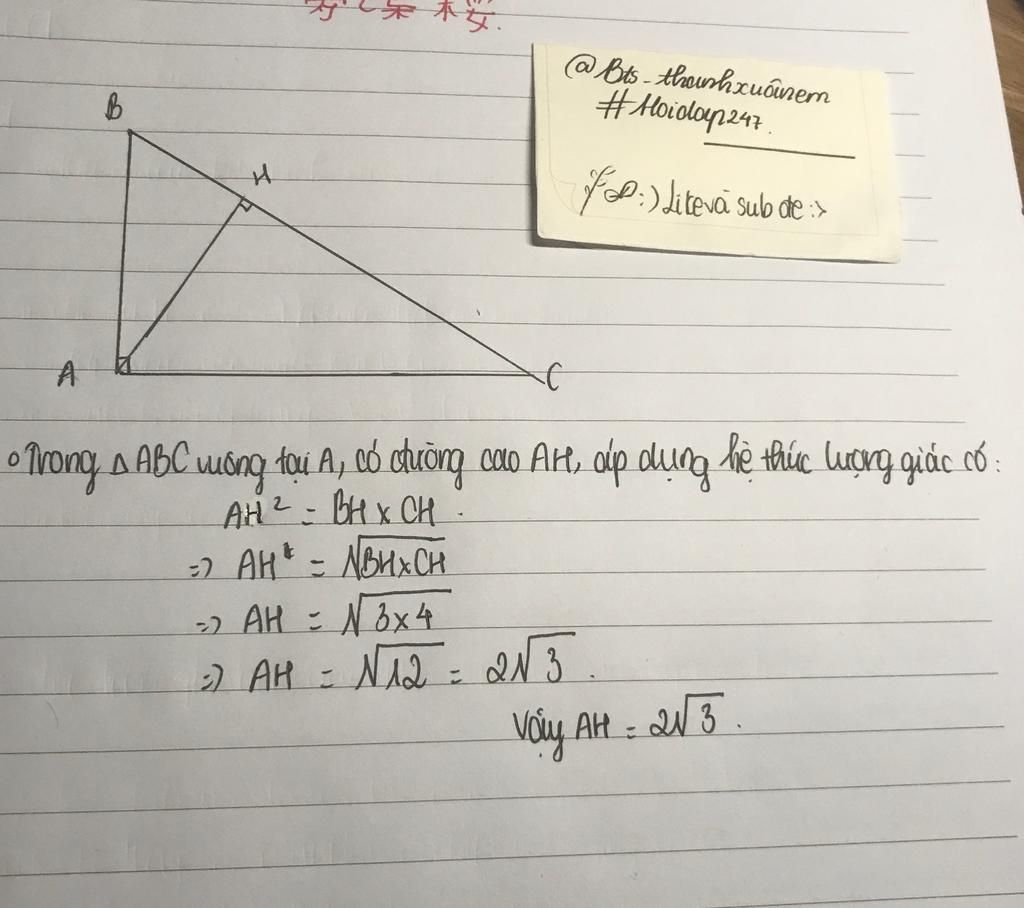 @Bts_thanhxuânem
#Hoidap247.
:) Like và sub de :>
B
H
A
C
Trong △ABC vuông tại A, có đường cao AH, áp dụng hệ thức lượng giác có:
AH² = BH x CH.
=> AH = √BH x CH
=> AH = √3 x 4
=> AH = √12 = 2√3.
Vậy AH = 2√3.